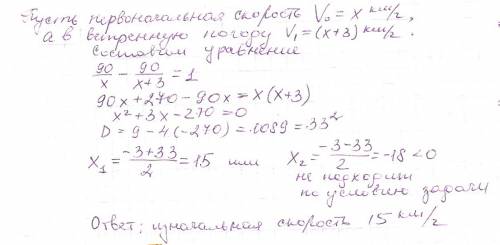 Пусть первоначальная скорость V₀ = x км/г,
а в ветренную погоду V₁ = (x+3) км/г.
Составим уравнение
90/x - 90/x+3 = 1
90x + 270 - 90x = x(x+3)
x² + 3x - 270 = 0
D = 9 - 4(-270) = 1089 = 33²
x₁ = -3+33/2 = 15 или x₂ = -3-33/2 = -18 < 0
не подходит
по условию задачи
Ответ: изначальная скорость 15 км/г